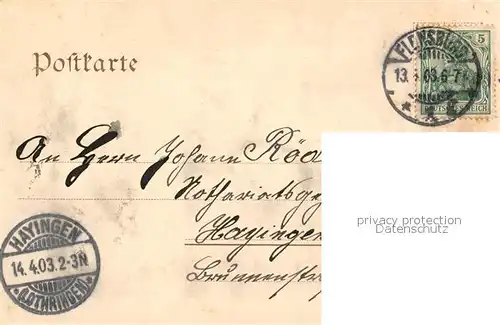 Postkarte
FLENSBURG
5
13. 4. 03. 6-7
DEUTSCHES REICH
An Herrn Johann
Notariatsge
Hayingen
Brunnenstr
privacy protection
Datenschutz
HAYINGEN
14.4.03.2-3N
(LOTHRINGEN)